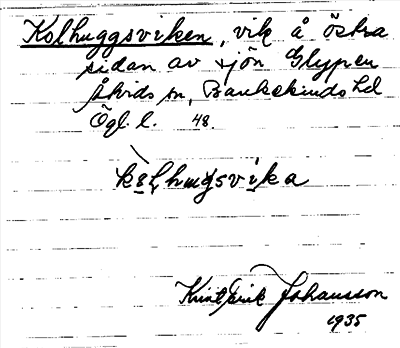 Kolhuggsviken, vik å östra
sidan av sjön Glypen
Åtvids sn, Bankekinds hd
Ögl. l. 48.
Knut Erik Johansson
1935